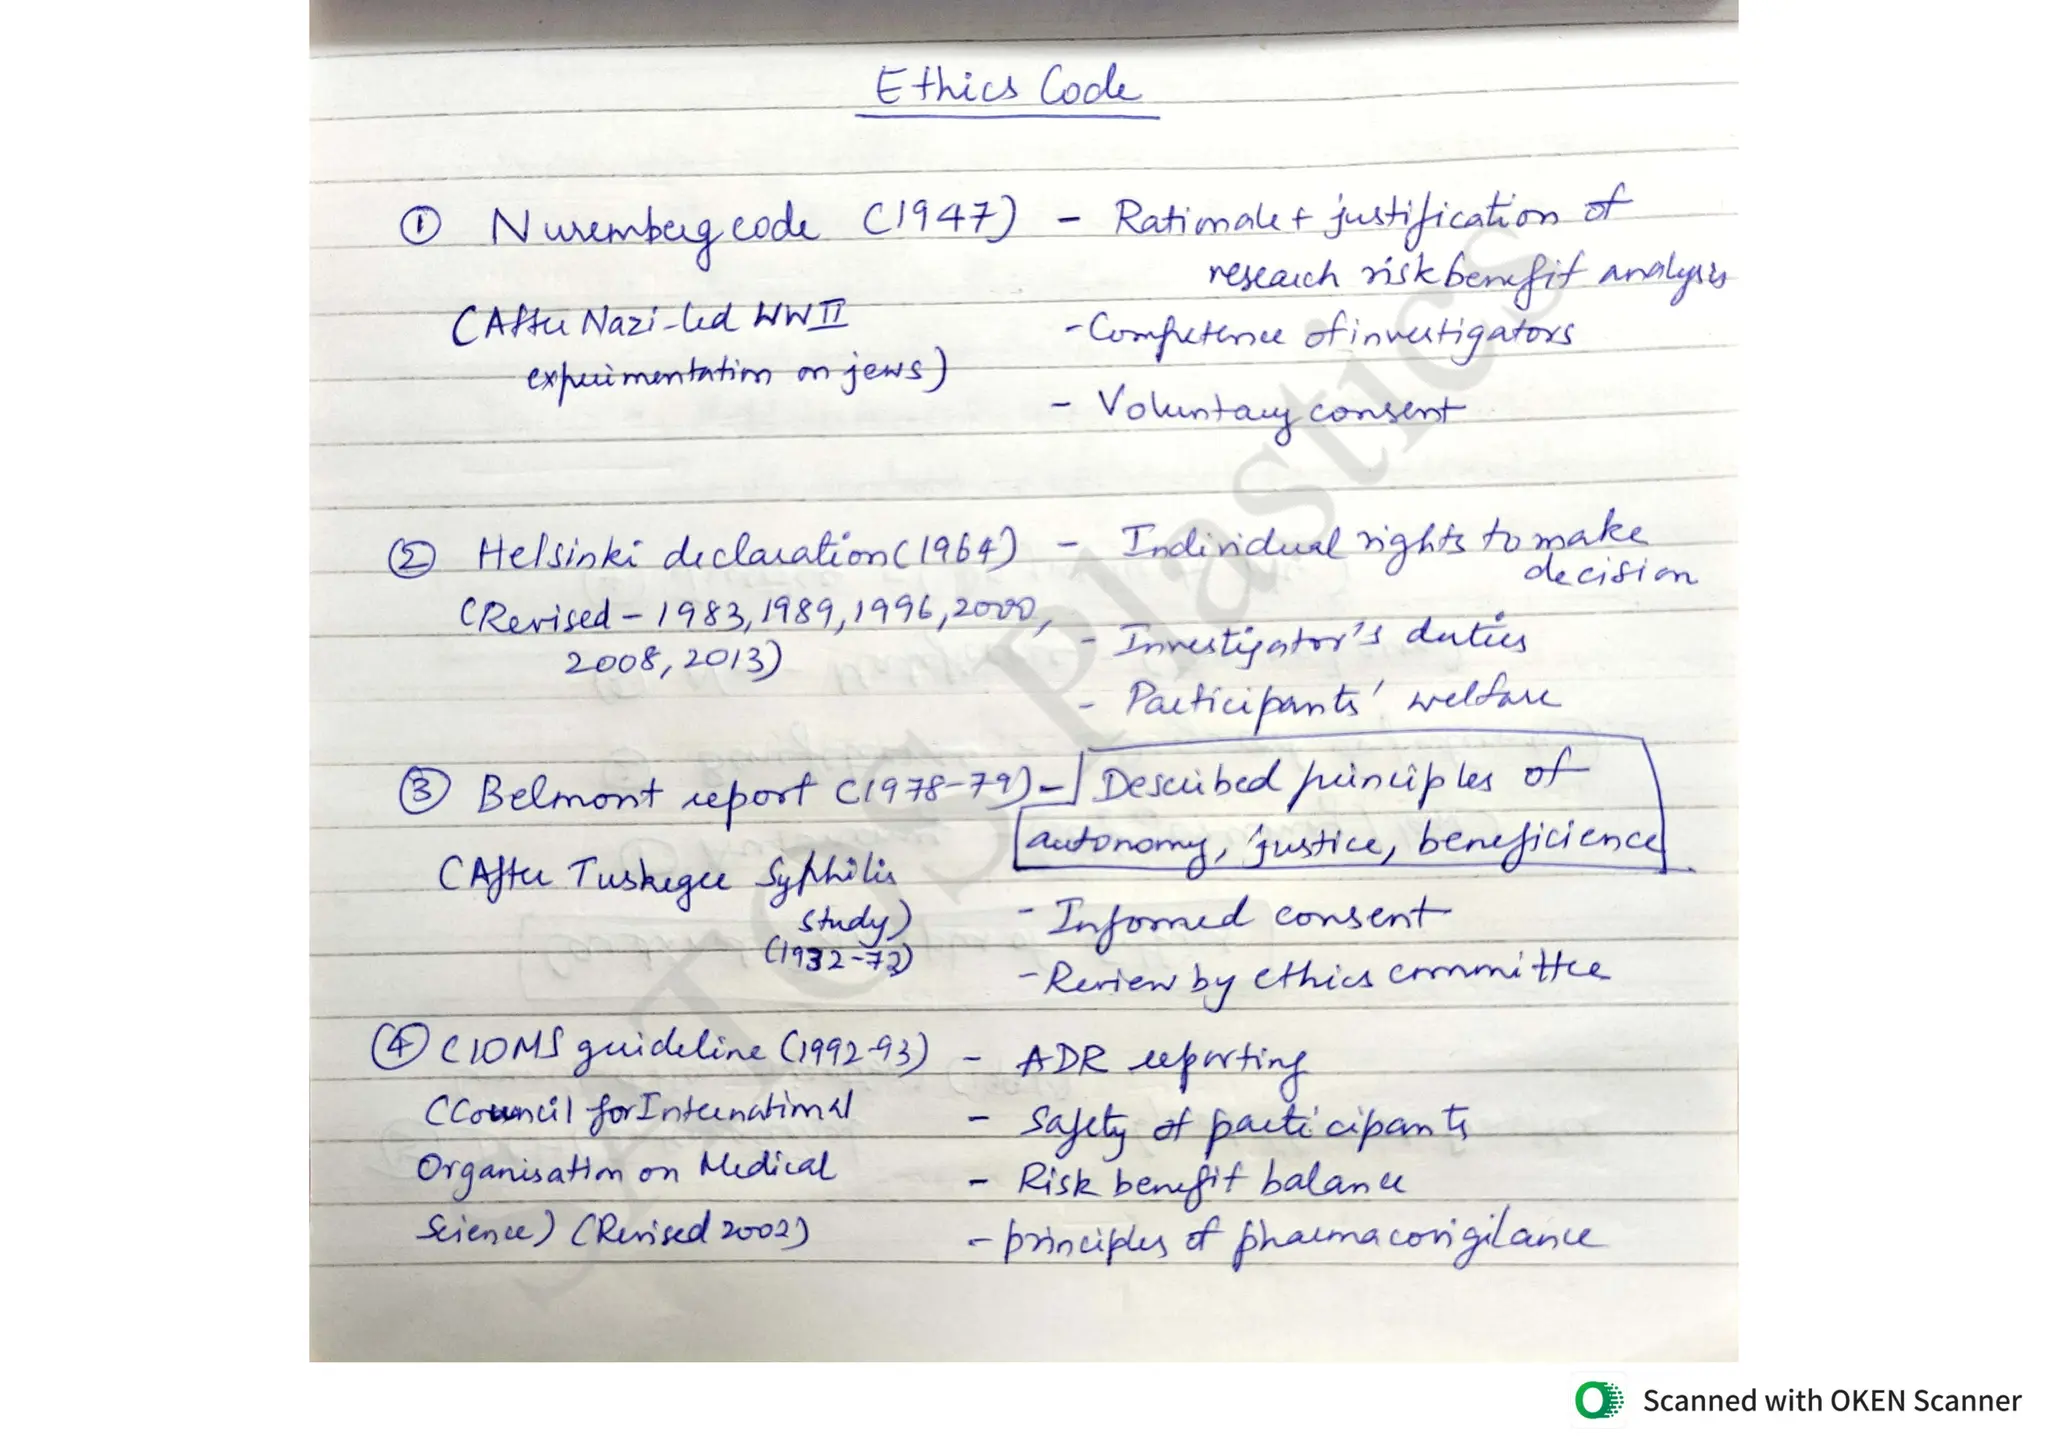 Ethics Code
① Nuremberg code (1947) - Rationale + justification of
research risk benefit analysis
(After Nazi-led WW II
experimentation on jews)
- Competence of investigators
- Voluntary consent
② Helsinki declaration (1964) - Individual rights to make
decision
(Revised - 1983, 1989, 1996, 2000,
2008, 2013)
- Investigator's duties
- Participants' welfare
③ Belmont report (1978-79) - Described principles of
autonomy, justice, beneficience
(After Tuskegee Syphilis
study)
(1932-72)
- Informed consent
- Review by ethics committee
④ CIOMS guideline (1992-93) - ADR reporting
(Council for International
Organisation on Medical
Science) (Revised 2002)
- Safety of participants
- Risk benefit balance
- principles of pharmacovigilance
ATOS Plastics
Scanned with OKEN Scanner